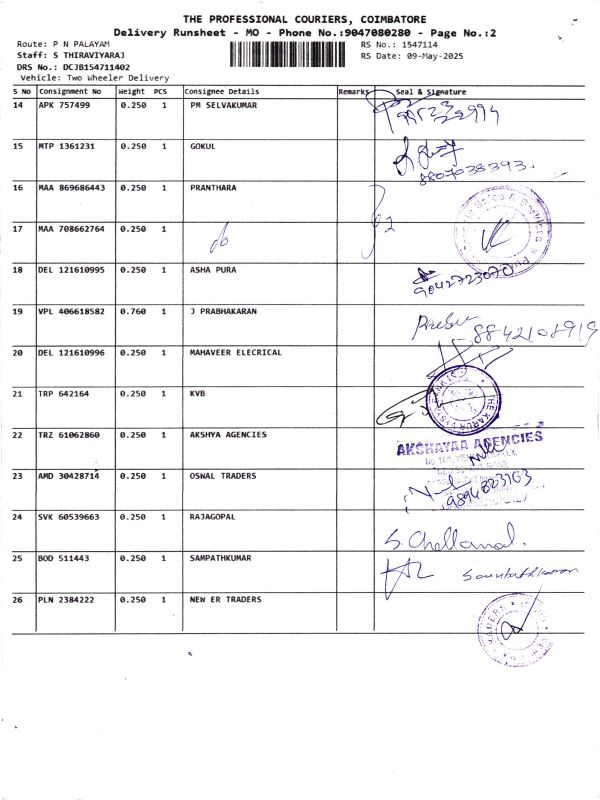 THE PROFESSIONAL COURIERS, COIMBATORE
Delivery Runsheet - MO - Phone No.:9047080280 - Page No.:2
Route: P N PALAYAM
RS No.: 1547114
Staff: S THIRAVIYARAJ
RS Date: 09-May-2025
DRS No.: DCJB154711402
Vehicle: Two Wheeler Delivery
S No Consignment No Weight PCS Consignee Details Remarks Seal & Signature
14 APK 757499 0.250 1 PM SELVAKUMAR
15 MTP 1361231 0.250 1 GOKUL
8807038393.
16 MAA 869686443 0.250 1 PRANTHARA
17 MAA 708662764 0.250 1 do
18 DEL 121610995 0.250 1 ASHA PURA
9042723070
19 VPL 406618582 0.760 1 J PRABHAKARAN
8842108919
20 DEL 121610996 0.250 1 MAHAVEER ELECRICAL
21 TRP 642164 0.250 1 KVB
22 TRZ 61062860 0.250 1 AKSHYA AGENCIES
AKSHAYAA AGENCIES
23 AMD 30428714 0.250 1 OSWAL TRADERS
9894823163
24 SVK 60539663 0.250 1 RAJAGOPAL
S. Chellamal.
25 BOD 511443 0.250 1 SAMPATHKUMAR
26 PLN 2384222 0.250 1 NEW ER TRADERS